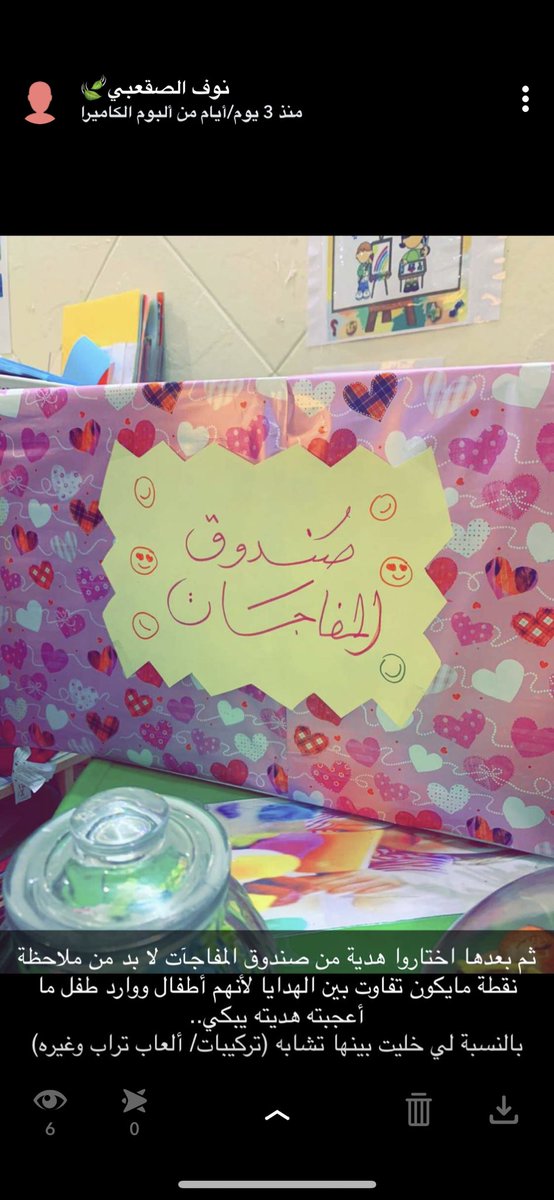 نوف الصقعبي🌿
منذ 3 يوم/أيام من ألبوم الكاميرا
صُندوق
المفاجـآت
ثم بعدها اختاروا هدية من صندوق المفاجآت لا بد من ملاحظة
نقطة مايكون تفاوت بين الهدايا لأنهم أطفال ووارد طفل ما
أعجبته هديته يبكي..
بالنسبة لي خليت بينها تشابه (تركيبات/ ألعاب تراب وغيره)
6
0